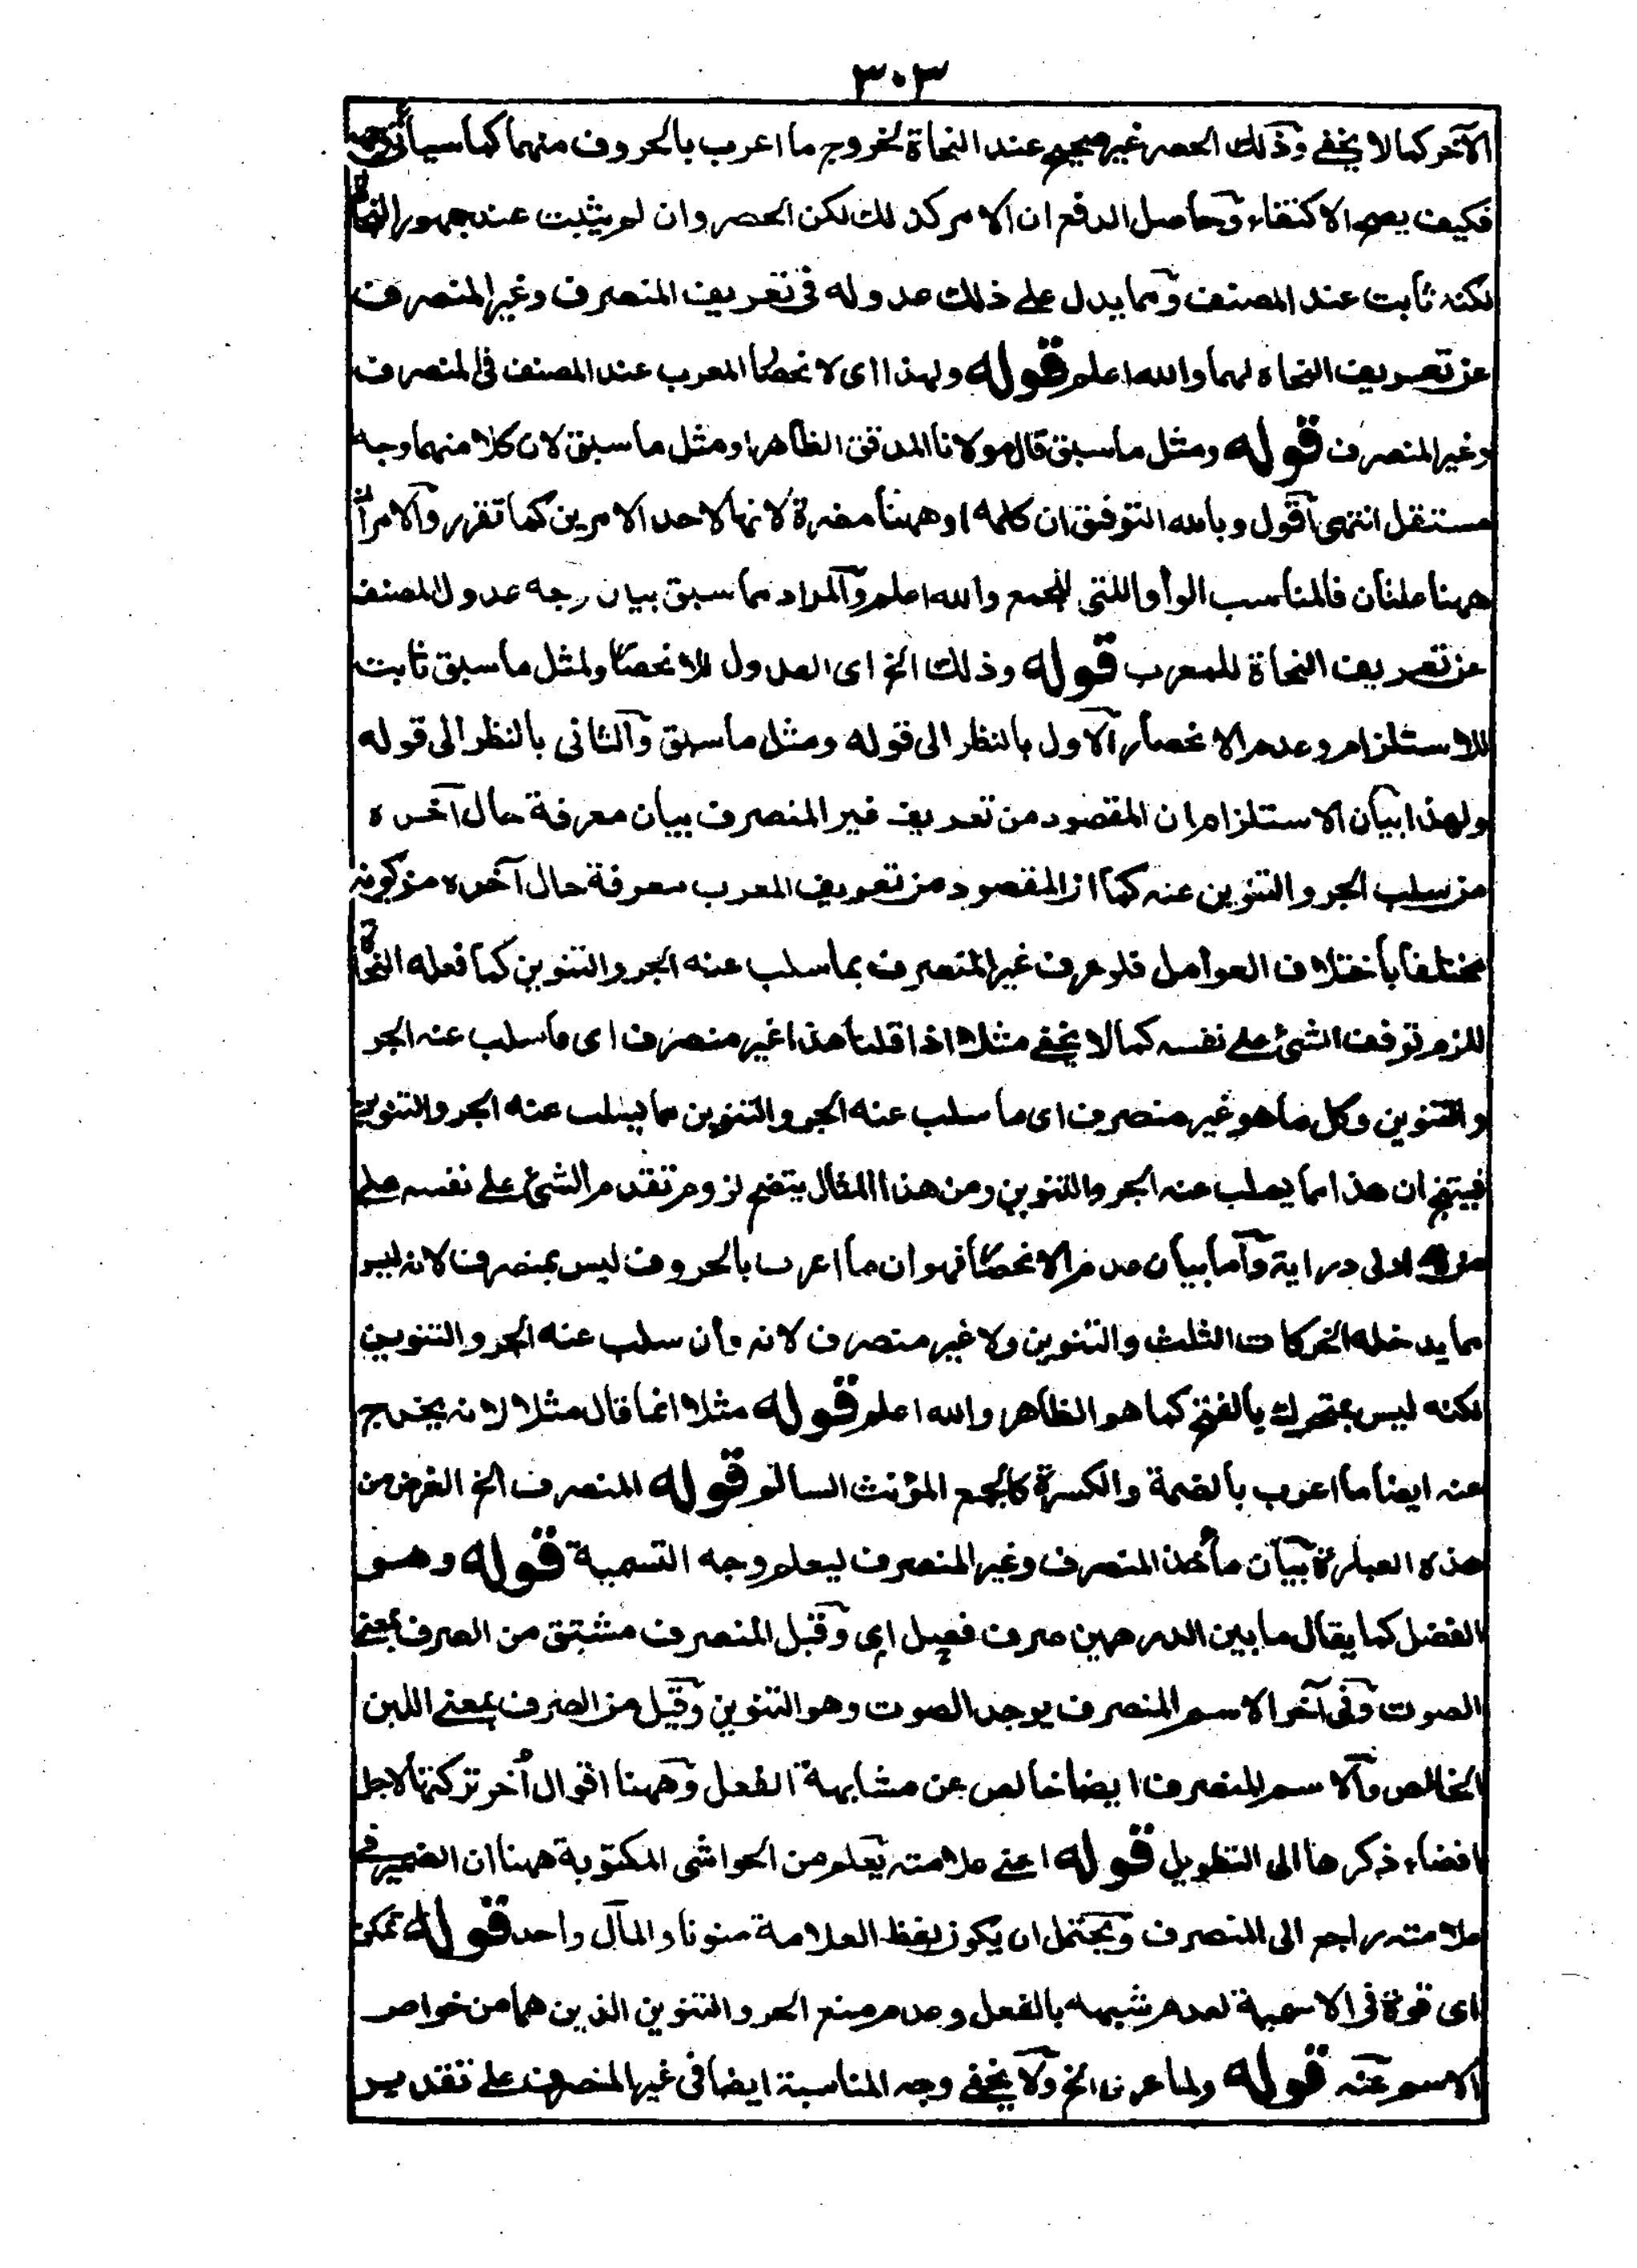 ٣٠٣
الآخر كما لا يخفے وذلك الحصر غير صحيح عند النحاة لخروج ما اعرب بالحروف منهما كما سيأتى
فكيف يصح الاكتفاء وحاصل الدفع ان الامر كذلك لكن الحصر وان لم يثبت عند جمهور النحاة
لكنه ثابت عند المصنف ومما يدل علے ذلك عدوله فى تعريف المنصرف وغير المنصرف
عن تعريف النحاه لهما والله اعلم قوله ولهذا اى لانحصار المعرب عند المصنف فى المنصرف
وغير المنصرف قوله ومثل ما سبق قال مولانا المدقق الظاهر او مثل ما سبق لان كلا منهما وجه
مستقل انتهى اقول وبالله التوفيق ان كلمه او ههنا مضرة لانها لاحد الامرين كما تقرر والامران
ههنا علتان فالمناسب الواو اللتى للجمع والله اعلم والمراد مما سبق بيان وجه عدول المصنف
عن تعريف النحاة للمعرب قوله وذلك الخ اى العدول للانحصار ولمثل ما سبق ثابت
للاستلزام وعدم الانحصار الاول بالنظر الى قوله ومثل ما سبق والثانى بالنظر الى قوله
ولهذا بيان الاستلزام ان المقصود من تعريف غير المنصرف بيان معرفة حال آخره
من سلب الجر والتنوين عنه كما ان المقصود من تعريف المعرب معرفة حال آخره من كونه
مختلفا باختلاف العوامل فلو عرف غير المنصرف بما سلب عنه الجر والتنوين كما فعله النحاة
للزم توقف الشئ علے نفسه كما لا يخفے مثلا اذا قلنا هذا غير منصرف اى ما سلب عنه الجر
والتنوين وكل ما هو غير منصرف اى ما سلب عنه الجر والتنوين مما يسلب عنه الجر والتنوين
فينتج ان هذا مما يسلب عنه الجر والتنوين ومن هذا المثال يتضح لزوم تقدم الشئ علے نفسه علے
من له ادنى دراية وآما بيان عدم الانحصار فهو ان ما اعرب بالحروف ليس بمنصرف لانه ليس
مما يدخله الحركات الثلث والتنوين ولا غير منصرف لانه وان سلب عنه الجر والتنوين
لكنه ليس بمتحرك بالفتح كما هو الظاهر والله اعلم قوله مثلا انما قال مثلا لانه يخرج
عنه ايضا ما اعرب بالضمة والكسرة كالجمع المؤنث السالم قوله المنصرف الخ الغرض من
هذه العبارة بيان مأخذ المنصرف وغير المنصرف ليعلم وجه التسمية قوله وهو
الفضل كما يقال ما بين الدرهمين صرف فضل اى وقيل المنصرف مشتق من الصرف بمعنے
الصوت وفى آخر الاسم المنصرف يوجد الصوت وهو التنوين وقيل من الصرف بمعنے اللبن
الخالص والاسم المنصرف ايضا خالص عن مشابهة الفعل وههنا اقوال اُخر تركتها لاجل
افضاء ذكرها الى التطويل قوله اعنے علامته يعلم من الحواشى المكتوبة ههنا ان الضمير فے
علامته راجع الى المنصرف ويحتمل ان يكون لفظ العلامة منونا والمآل واحد قوله تمكن
اى قوة فى الاسمية لعدم شبهه بالفعل وعدم منع الجر والتنوين الذين هما من خواص
الاسم عنه قوله ولما عرف الخ ولا يخفے وجه المناسبة ايضا فى غير المنصرف علے تقدير